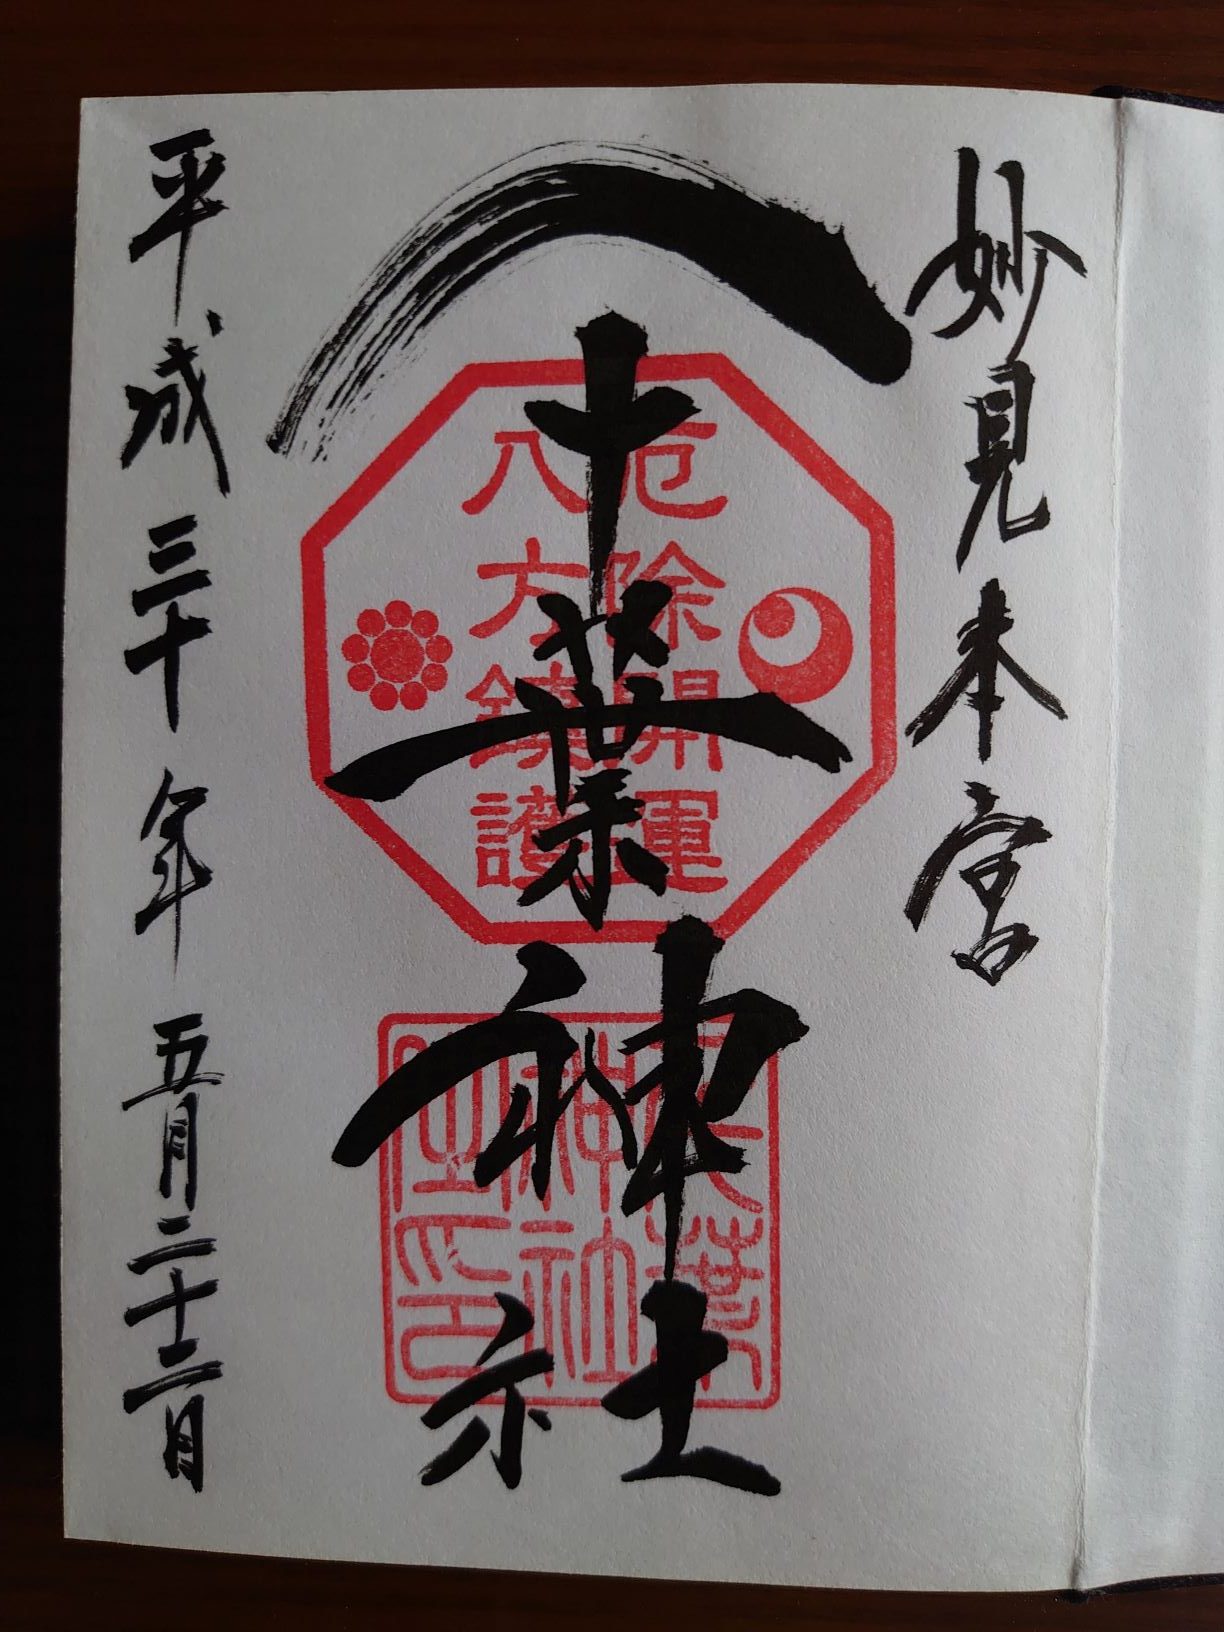 妙見本宮
千葉神社
厄除開運
八方鎮護
千葉
神社
印
平成三十年五月二十三日